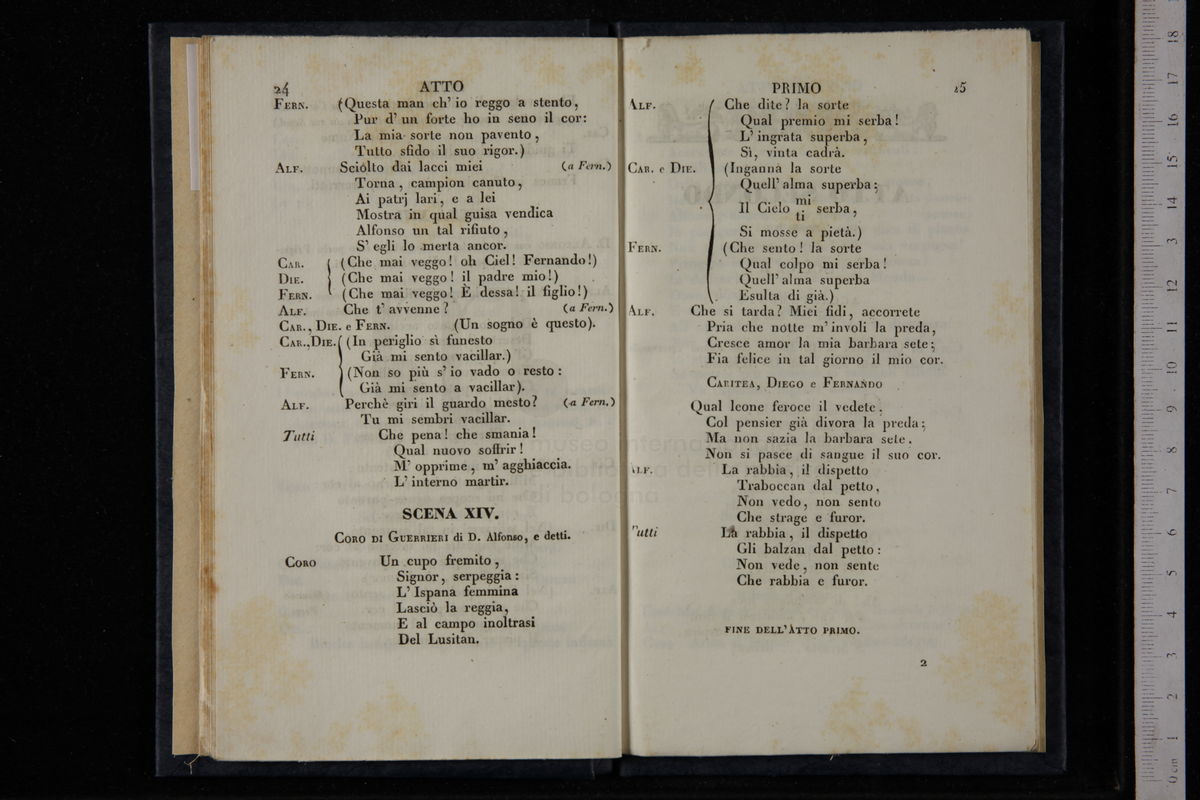 24 ATTO
FERN. (Questa man ch' io reggo a stento,
Pur d' un forte ho in seno il cor:
La mia sorte non pavento,
Tutto sfido il suo rigor.)
ALF. Sciolto dai lacci miei (a Fern.)
Torna, campion canuto,
Ai patrj lari, e a lei
Mostra in qual guisa vendica
Alfonso un tal rifiuto,
S' egli lo merta ancor.
CAR. (Che mai veggo! oh Ciel! Fernando!)
DIE. (Che mai veggo! il padre mio!)
FERN. (Che mai veggo! È dessa! il figlio!)
ALF. Che t' avvenne? (a Fern.)
CAR., DIE. e FERN. (Un sogno è questo).
CAR., DIE. (In periglio sì funesto
Già mi sento vacillar.)
FERN. (Non so più s' io vado o resto:
Già mi sento a vacillar).
ALF. Perchè giri il guardo mesto? (a Fern.)
Tu mi sembri vacillar.
Tutti Che pena! che smania!
Qual nuovo soffrir!
M' opprime, m' agghiaccia.
L' interno martir.
SCENA XIV.
CORO DI GUERRIERI di D. Alfonso, e detti.
CORO Un cupo fremito,
Signor, serpeggia:
L' Ispana femmina
Lasciò la reggia,
E al campo inoltrasi
Del Lusitan.
PRIMO 25
ALF. Che dite? la sorte
Qual premio mi serba!
L' ingrata superba,
Sì, vinta cadrà.
CAR. e DIE. (Inganna la sorte
Quell' alma superba;
Il Cielo mi serba,
ti
Si mosse a pietà.)
FERN. (Che sento! la sorte
Qual colpo mi serba!
Quell' alma superba
Esulta di già.)
ALF. Che si tarda? Miei fidi, accorrete
Pria che notte m' involi la preda,
Cresce amor la mia barbara sete;
Fia felice in tal giorno il mio cor.
CARITEA, DIEGO e FERNANDO
Qual leone feroce il vedete.
Col pensier già divora la preda;
Ma non sazia la barbara sete.
Non si pasce di sangue il suo cor.
ALF. La rabbia, il dispetto
Traboccan dal petto,
Non vedo, non sento
Che strage e furor.
Tutti La rabbia, il dispetto
Gli balzan dal petto:
Non vede, non sente
Che rabbia e furor.
FINE DELL' ATTO PRIMO.
2